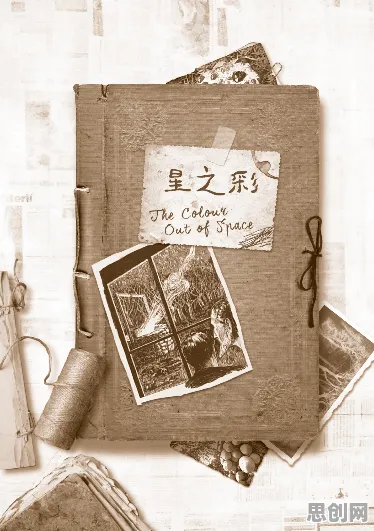 星之彩
The Colour
Out of Space
思创网